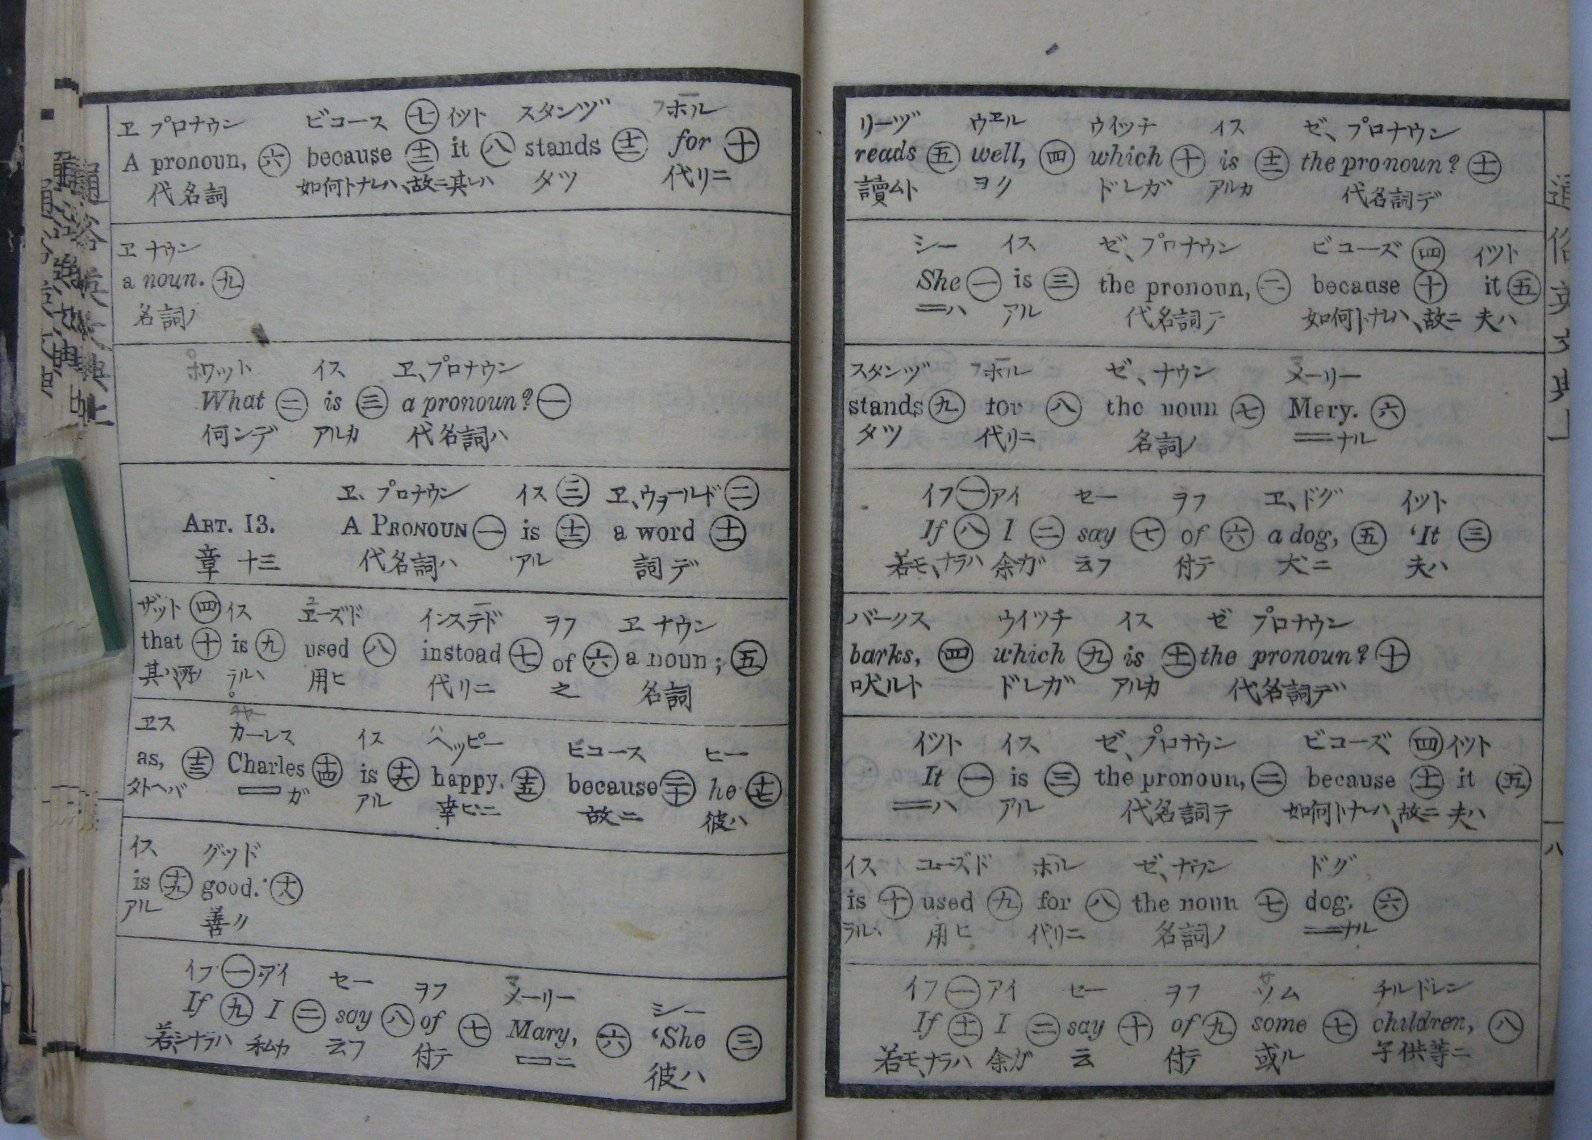 ヱ プロナウン ビコース 七 イット スタンヅ ホール
A pronoun, 六 because 十三 it 八 stands 十二 for 十
代名詞 如何トナレハ、故ニ 其レハ タツ 代リニ
ヱ ナウン
a noun. 九
名詞ノ
ホワット イス ヱ、プロナウン
What 二 is 三 a pronoun? 一
何ンデ アルカ 代名詞ハ
ヱ、プロナウン イス 三 ヱ、ウォールド 二
ART. 13. A PRONOUN 一 is 十二 a word 十一
章 十三 代名詞ハ アル 詞デ
ザット 四 イス ユーズド インステード ヲフ ヱ ナウン
that 十 is 九 used 八 instoad 七 of 六 a noun; 五
用ヒ 代リニ 之 名詞
ヱス チャーレス イス ハッピー ビコース ヒー
as, 十三 Charles 十四 is 十六 happy. 十五 because 二十 he 十七
タトヘバ ガ アル 幸ヒニ 故ニ 彼ハ
イス グッド
is 十九 good. 十八
アル 善ク
イフ 一 アイ セー ヲフ メーリー シー
If 九 I 二 say 八 of 七 Mary, 六 ‘She 三
若シ、ナラハ 私カ 云フ 付テ ニ 彼ハ
リーヅ ウヱル ウイッチ イス ゼ、プロナウン
reads 五 well, 四 which 十 is 十二 the pronoun? 十一
讀ムト ヨク ドレガ アルカ 代名詞デ
シー イス ゼ、プロナウン ビコーズ 四 イット
She 一 is 三 the pronoun, 二 because 十 it 五
ハ アル 代名詞テ 如何トナレハ、故ニ 夫ハ
スタンヅ ホール ゼ、ナウン メーリー
stands 九 for 八 the noun 七 Mery. 六
タツ 代リニ 名詞ノ ナル
イフ 一 アイ セー ヲフ ヱ、ドグ イット
If 八 I 二 say 七 of 六 a dog, 五 ‘It 三
若モ、ナラハ 余ガ 云フ 付テ 犬ニ 夫ハ
バークス ウイッチ イス ゼ プロナウン
barks, 四 which 九 is 十一 the pronoun? 十
吠ルト ドレガ アルカ 代名詞デ
イット イス ゼ、プロナウン ビコーズ 四 イット
It 一 is 三 the pronoun, 二 because 十一 it 五
ハ アル 代名詞テ 如何トナレハ、故ニ 夫ハ
イス ユーズド ホール ゼ、ナウン ドグ
is 十 used 九 for 八 the noun 七 dog. 六
ラル、 用ヒ 代リニ 名詞ノ ナル
イフ 一 アイ セー ヲフ サム チルドレン
If 十一 I 二 say 十 of 九 some 七 children, 八
若モ、ナラハ 余ガ 云 付テ 或ル 子供等ニ
通俗英文典上
八